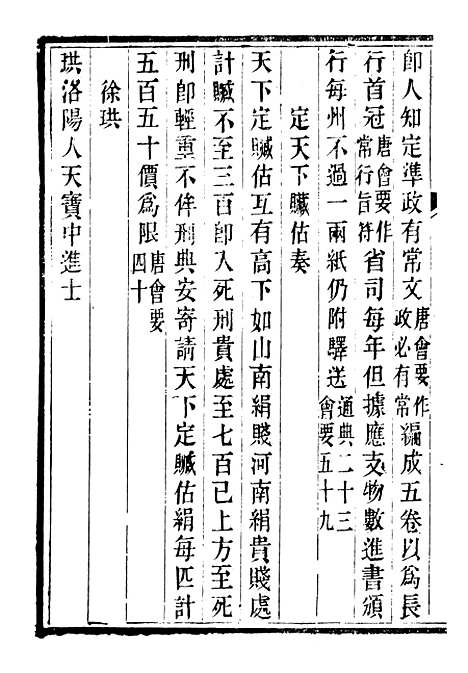 卽人知定準政有常文唐會要作政必有常編成五卷以爲長
行首冠唐會要作常行旨符省司每年但據應支物數進書頒
行每州不過一兩紙仍附驛送通典二十三會要五十九
定天下贓估奏
天下定贓估互有高下如山南絹賤河南絹貴賤處
計贓不至三百卽入死刑貴處至七百已上方至死
刑卽輕重不侔刑典安寄請天下定贓估絹每匹計
五百五十價爲限唐會要四十
徐珙
珙洛陽人天寶中進士